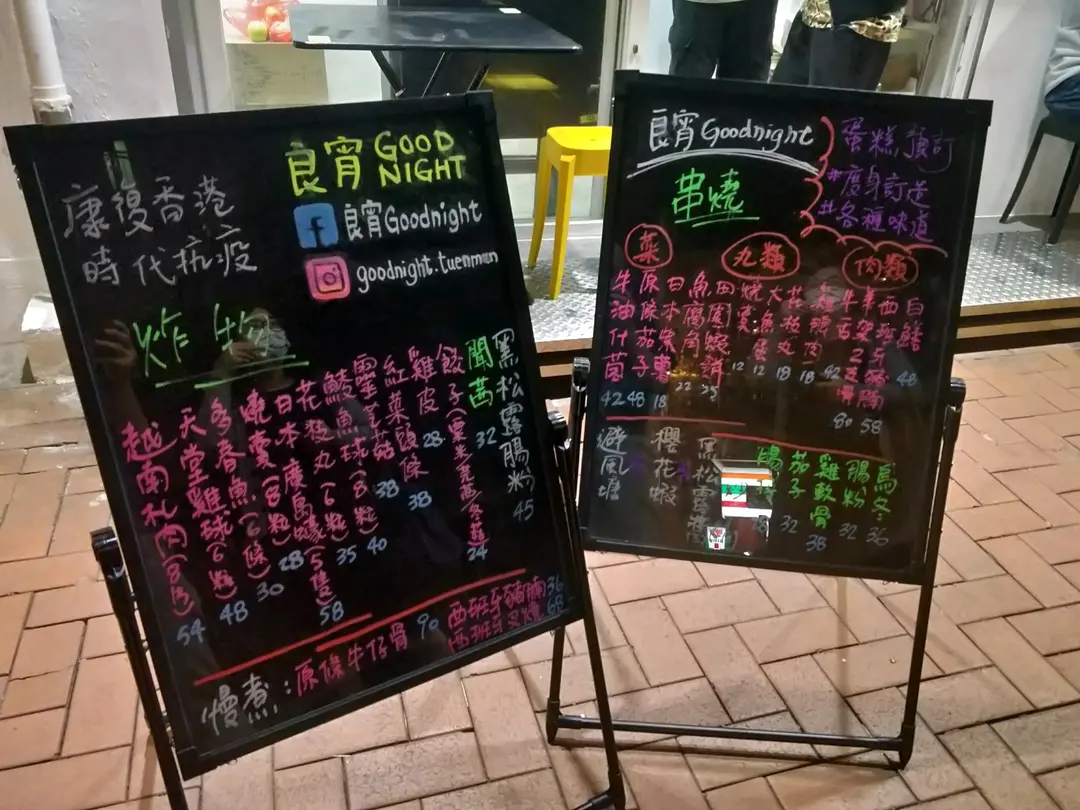 康復香港
時代抗疫
良宵 GOOD
NIGHT
良宵Goodnight
goodnight.tuenmun
炸物
越南扎肉(8件) 54
天堂雞球(6粒) 48
多春魚(6條) 30
燒賣(8粒) 28
日本廣島蠔(5隻) 58
花枝丸(6粒) 35
鯪魚球(8粒) 40
靈芝菇 38
紅菜頭條 38
雞皮 28
餃子(粟米 24
32
黑松露腸粉 45
慢煮:原條牛仔骨 90
西班牙豬腩 36
西班牙叉燒 68
良宵Goodnight
蛋糕預訂
*度身訂造
#各種味道
串燒
菜
牛油什菌 42
原條茄子 48
日本紫薯 18
丸類
魚腐 22
燒賣 12
大魚蛋 12
花枝丸 18
肉類
雞腿肉 18
牛舌 42
羊架2支 80
西班牙豬腩 58
白鱔 48
避風塘
櫻花蝦
黑松露
茄子 32
雞軟骨 38
腸粉 32
烏冬 36